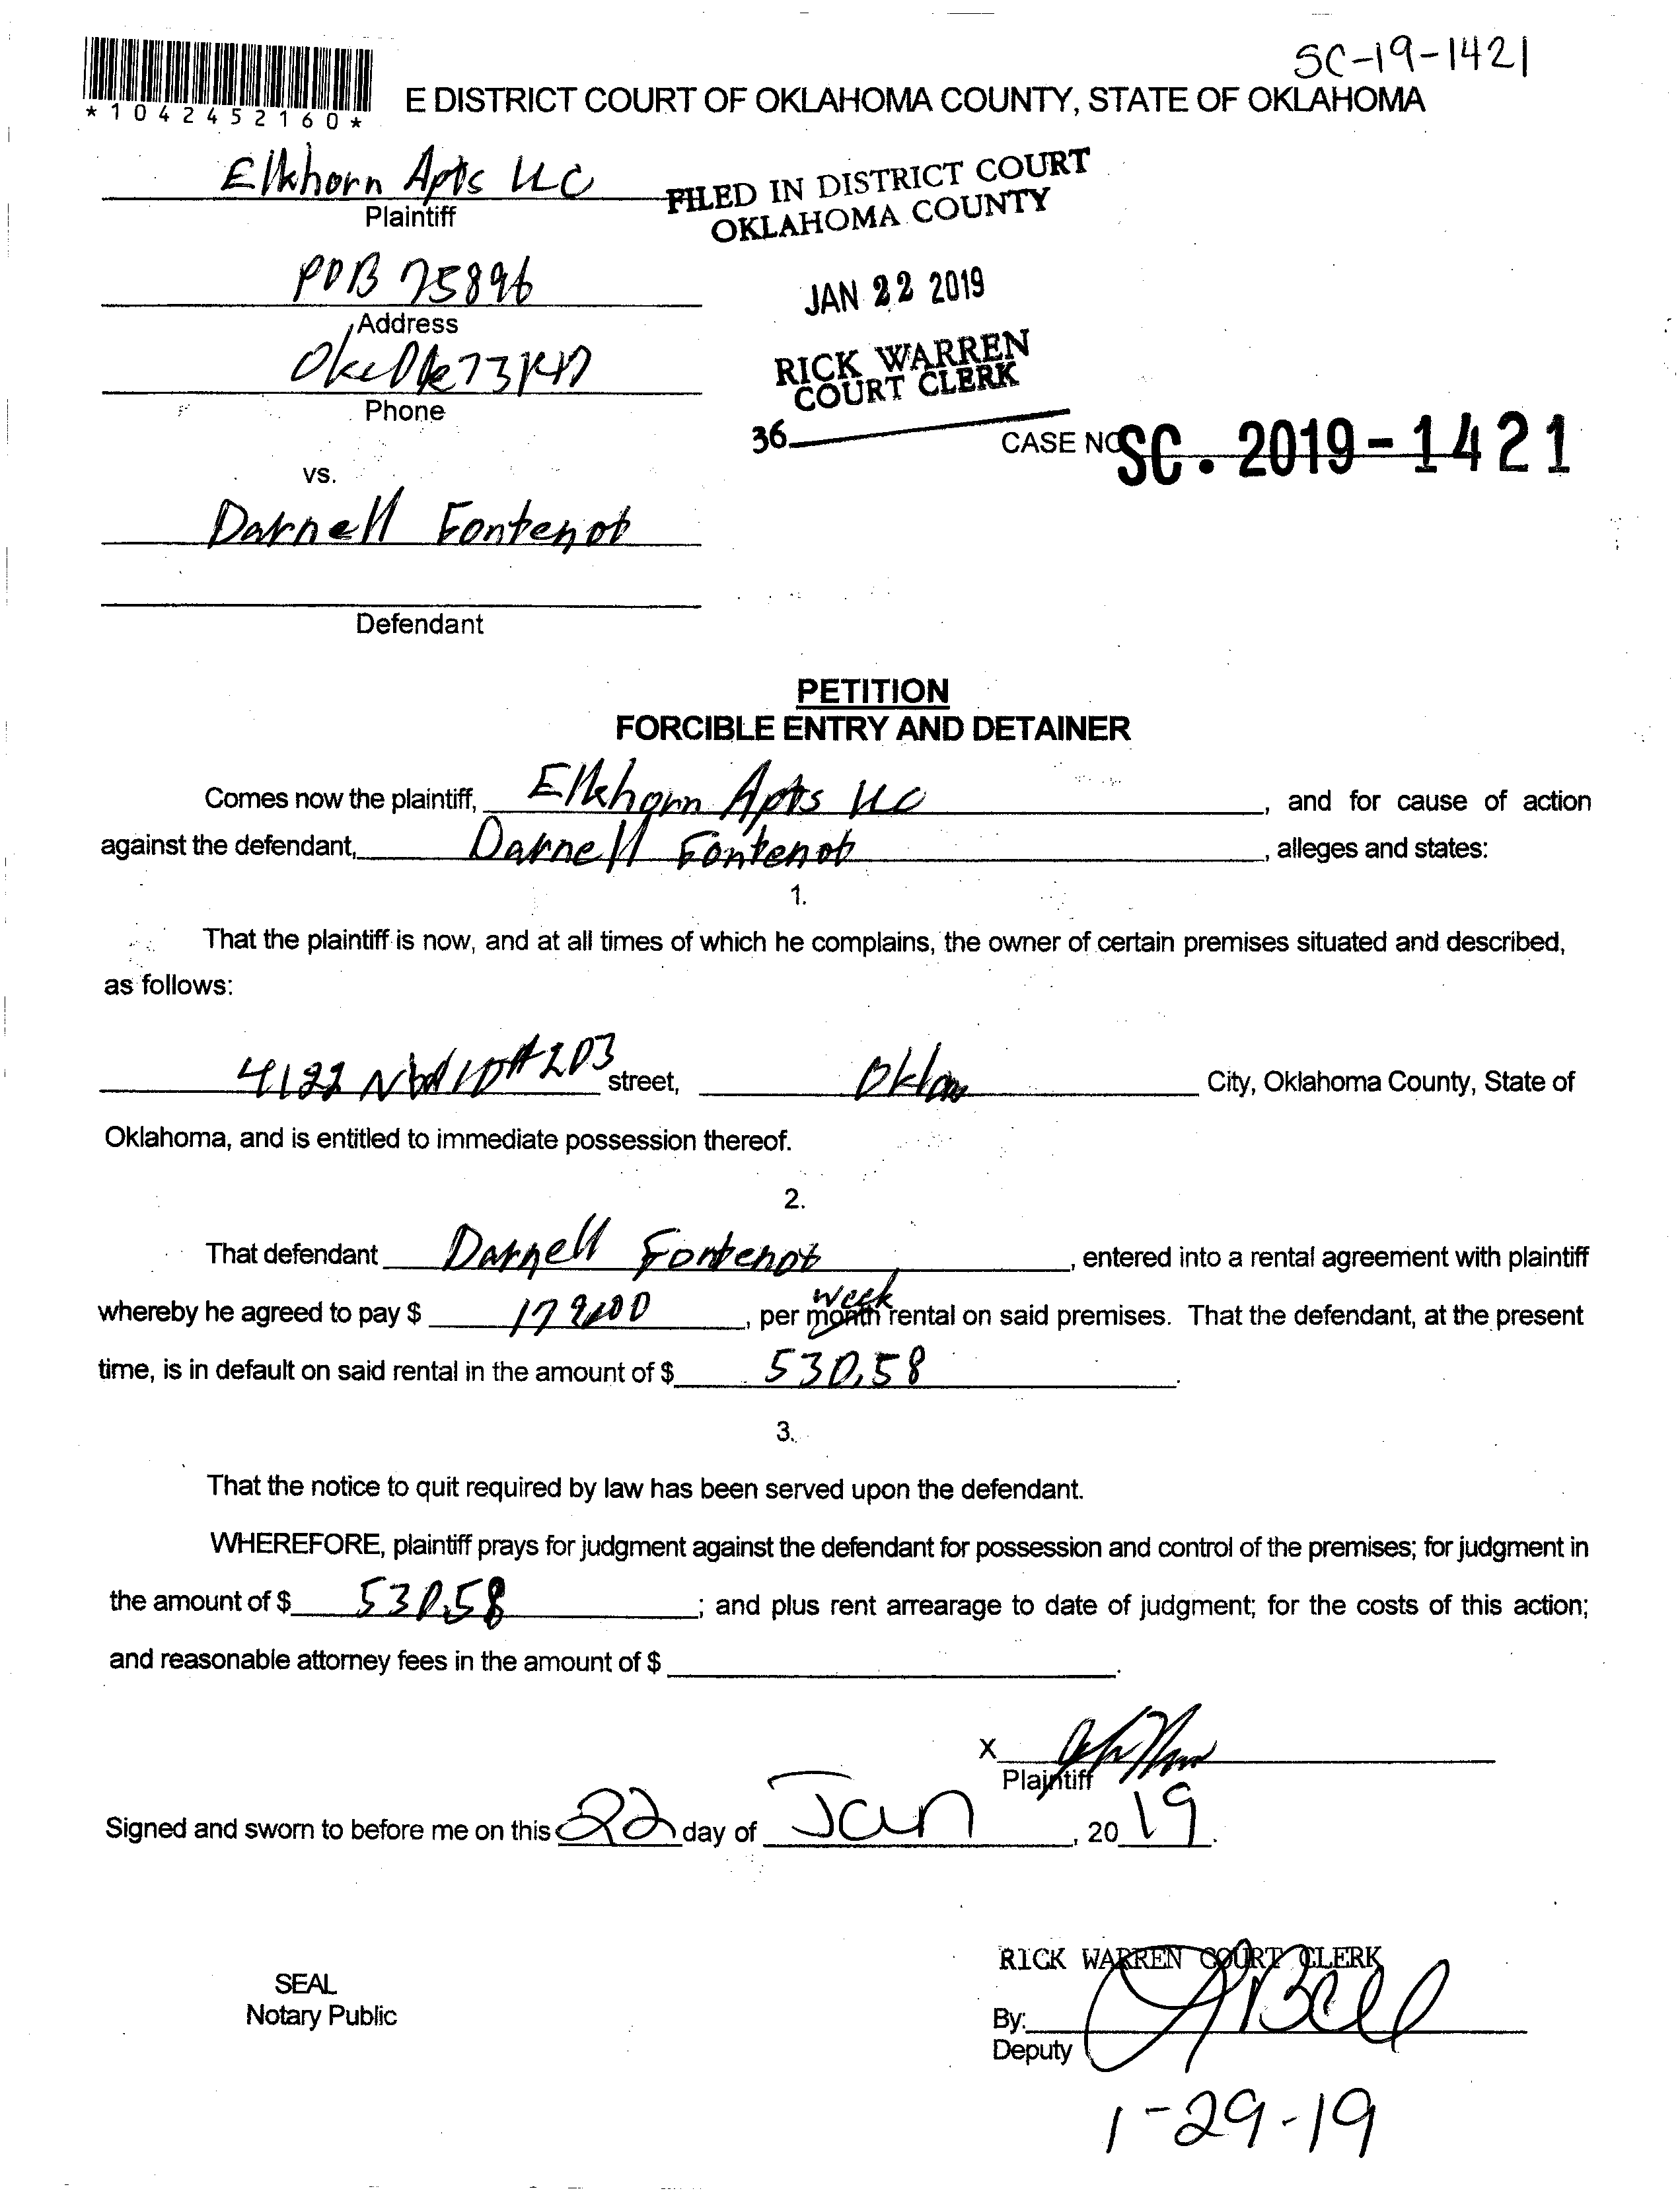 SC-19-1421
*1042452160*
E DISTRICT COURT OF OKLAHOMA COUNTY, STATE OF OKLAHOMA
Elkhorn Apts LLC
Plaintiff
FILED IN DISTRICT COURT
OKLAHOMA COUNTY
POB 75896
Address
JAN 22 2019
Phone
RICK WARREN
COURT CLERK
36
CASE NO SC. 2019-1421
vs.
Darnell Fontenot
Defendant
PETITION
FORCIBLE ENTRY AND DETAINER
Comes now the plaintiff, Elkhorn Apts LLC, and for cause of action
against the defendant, Darnell Fontenot, alleges and states:
1.
That the plaintiff is now, and at all times of which he complains, the owner of certain premises situated and described,
as follows:
4122 #203 street, City, Oklahoma County, State of
Oklahoma, and is entitled to immediate possession thereof.
2.
That defendant Darnell Fontenot, entered into a rental agreement with plaintiff
whereby he agreed to pay $, per month week rental on said premises. That the defendant, at the present
time, is in default on said rental in the amount of $ 530.58.
3.
That the notice to quit required by law has been served upon the defendant.
WHEREFORE, plaintiff prays for judgment against the defendant for possession and control of the premises; for judgment in
the amount of $ 530.58; and plus rent arrearage to date of judgment; for the costs of this action;
and reasonable attorney fees in the amount of $.
X
Plaintiff
Signed and sworn to before me on this 22 day of Jan, 2019.
RICK WARREN COURT CLERK
SEAL
Notary Public
By:
Deputy
1-29-19